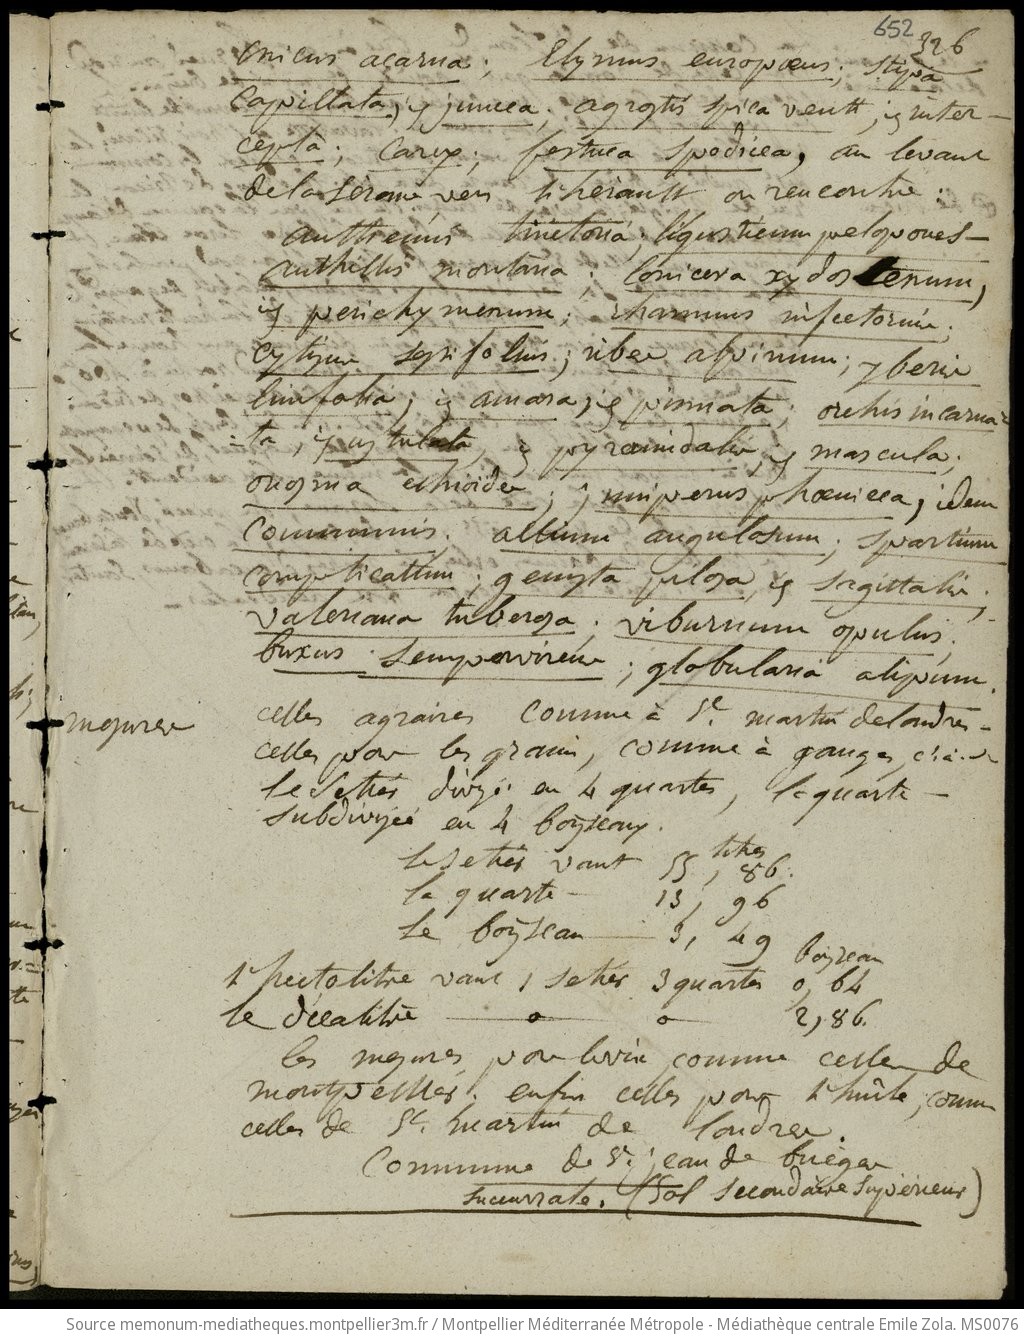 652
326
Cnicus acarna; Elymus europoeus; stypa
Capillata, id juncea; agrostis spica venti, id inter-
cepta; Carex; festuca spadicea, au levant
de la sérane, vers l'hérault on rencontre:
anthemis tinctoria; ligusticum pelopones-
anthillis montana; lonicera xydosteum,
id periclymenum; rhamnus infectorius.
Cytisus sessifolius; ribes alpinum; yberis
linifolia; id amara, id pinnata; orchis incarna-
ta, id ustulata, id pyramidalis, id mascula;
onosma echioides; juniperus phoenicea, idem
communis. allium angulosum; spartium
complicattum; genista pilosa, id sagittalis;
valeriana tuberosa; viburnum opulus;
buxus sempervirens; globularia alipum.
mesures
celles agraires comme à St. martin de londres-
celles pour les grains, comme à ganges, c'à.d
le Setier divisé en 4 quartes, la quarte
subdivisée en 4 boisseaux.
litres
le setier vaut 55, 86.
la quarte 13, 96
le boisseau 3, 49
boisseau
l'hectolitre vaut 1 setier 3 quartes 0, 64
le décalitre — 0 — 0 2, 86.
les mesures pour le vin comme celles de
montpellier; enfin celles pour l'huile, comme
celles de St. martin de londres.
Commune de St. jean de buèges
succursale. (Sol secondaire supérieur)
Source memonum-mediatheques.montpellier3m.fr / Montpellier Méditerranée Métropole - Médiathèque centrale Emile Zola. MS0076